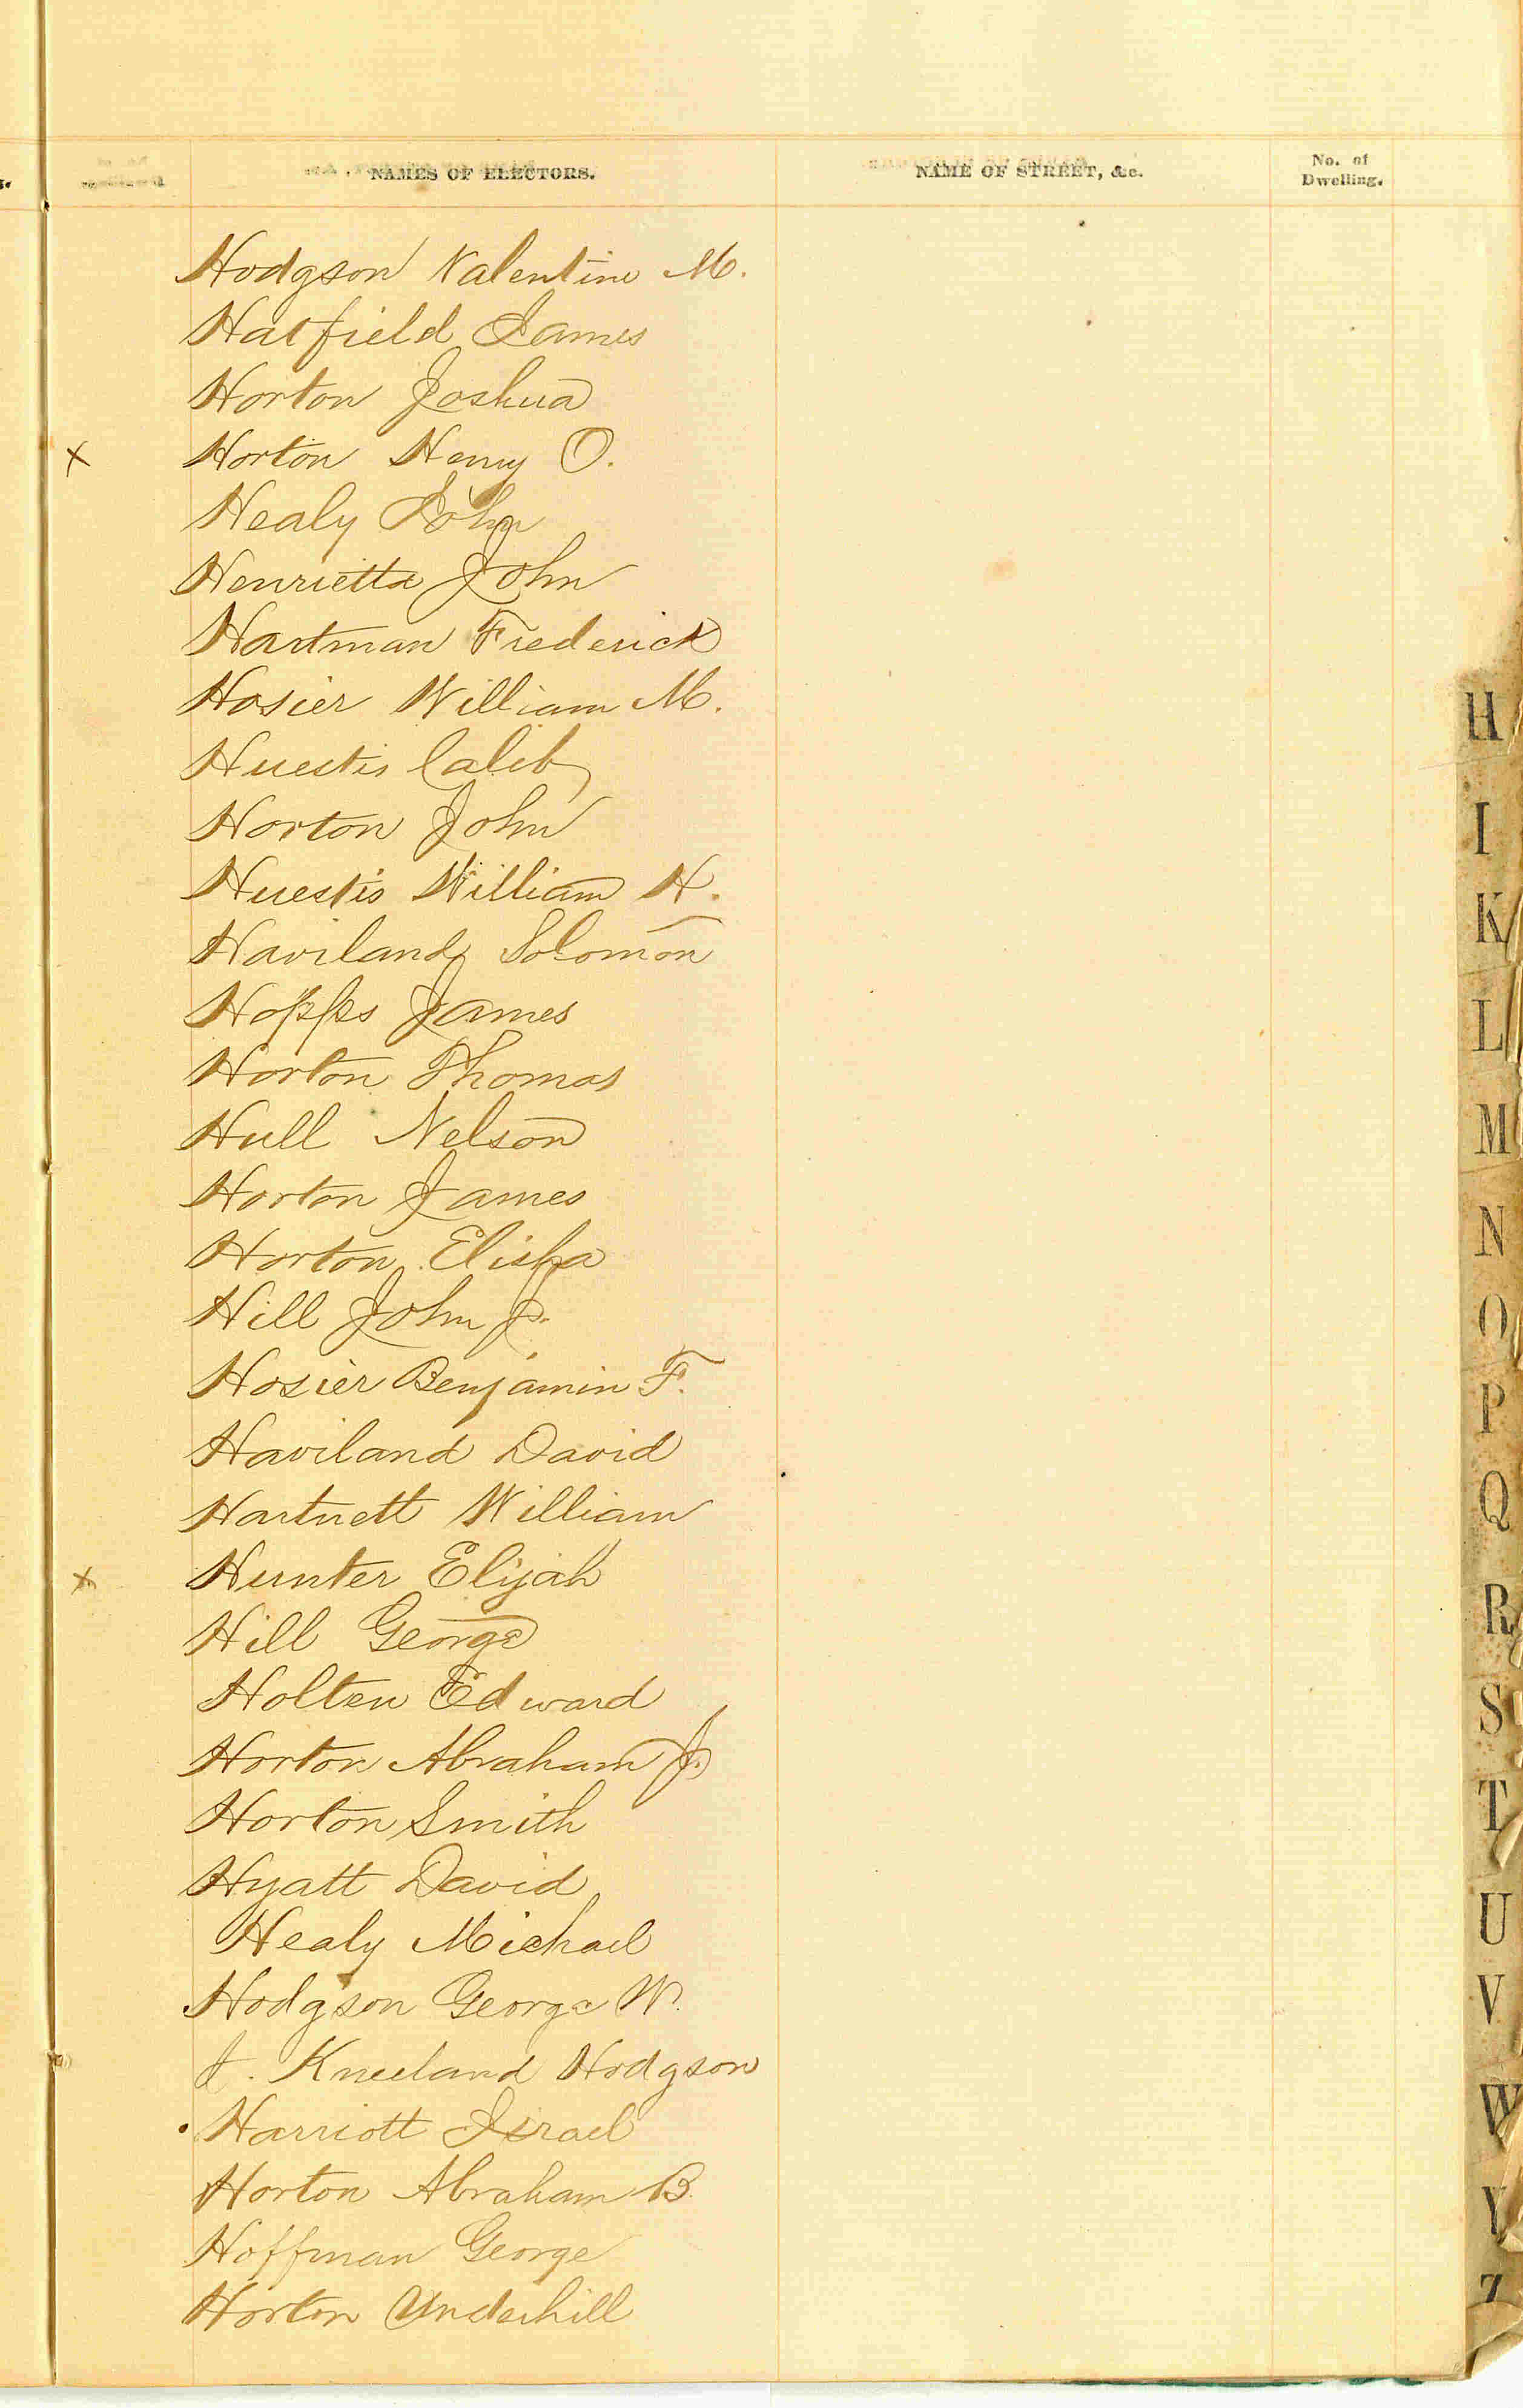 NAMES OF ELECTORS. NAME OF STREET, &c. No. of Dwelling.
Hodgson Valentine M.
Hatfield James
Horton Joshua
x Horton Henry O.
Healy John
Henrietta John
Hartman Frederick
Hosier William M.
Huestis Caleb
Horton John
Huestis William H.
Haviland Solomon
Hopps James
Horton Thomas
Hull Nelson
Horton James
Horton Elisha
Hill John J.
Hosier Benjamin F.
Haviland David
Hartnett William
x Hunter Elijah
Hill George
Holten Edward
Horton Abraham J.
Horton Smith
Hyatt David
Healy Michael
Hodgson George W.
Kneeland Hodgson
Harriott Israel
Horton Abraham B.
Hoffman George
Horton Underhill
H
I
K
L
M
N
O
P
Q
R
S
T
U
V
W
Y
Z